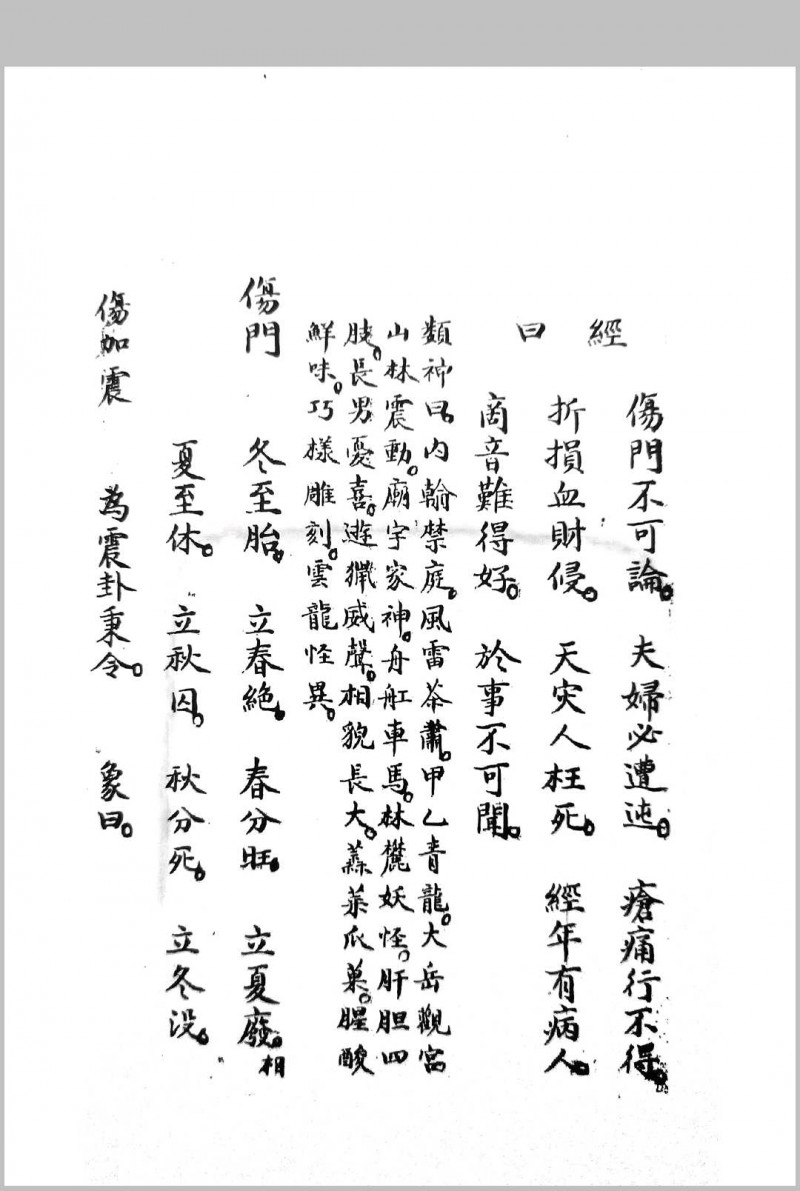 經曰
傷門不可論。夫婦必遭迍。瘡痛行不得。
折損血財侵。天灾人枉死。經年有病人。
啇音難得好。於事不可聞。
類神曰。內翰禁庭。風雷茶肅。甲乙青龍。大岳觀宮
山林震動。廟宇家神。舟舡車馬。林麓妖怪。肝胆四
肢。長男憂喜。遊獵威聲。相貌長大。蔬菜瓜菓。腥酸
鮮味。巧樣雕刻。雲龍怪異。
傷門 冬至胎。立春絕。春分旺。立夏廢。相
夏至休。立秋囚。秋分死。立冬没。
傷加震 為震卦秉令。象曰。